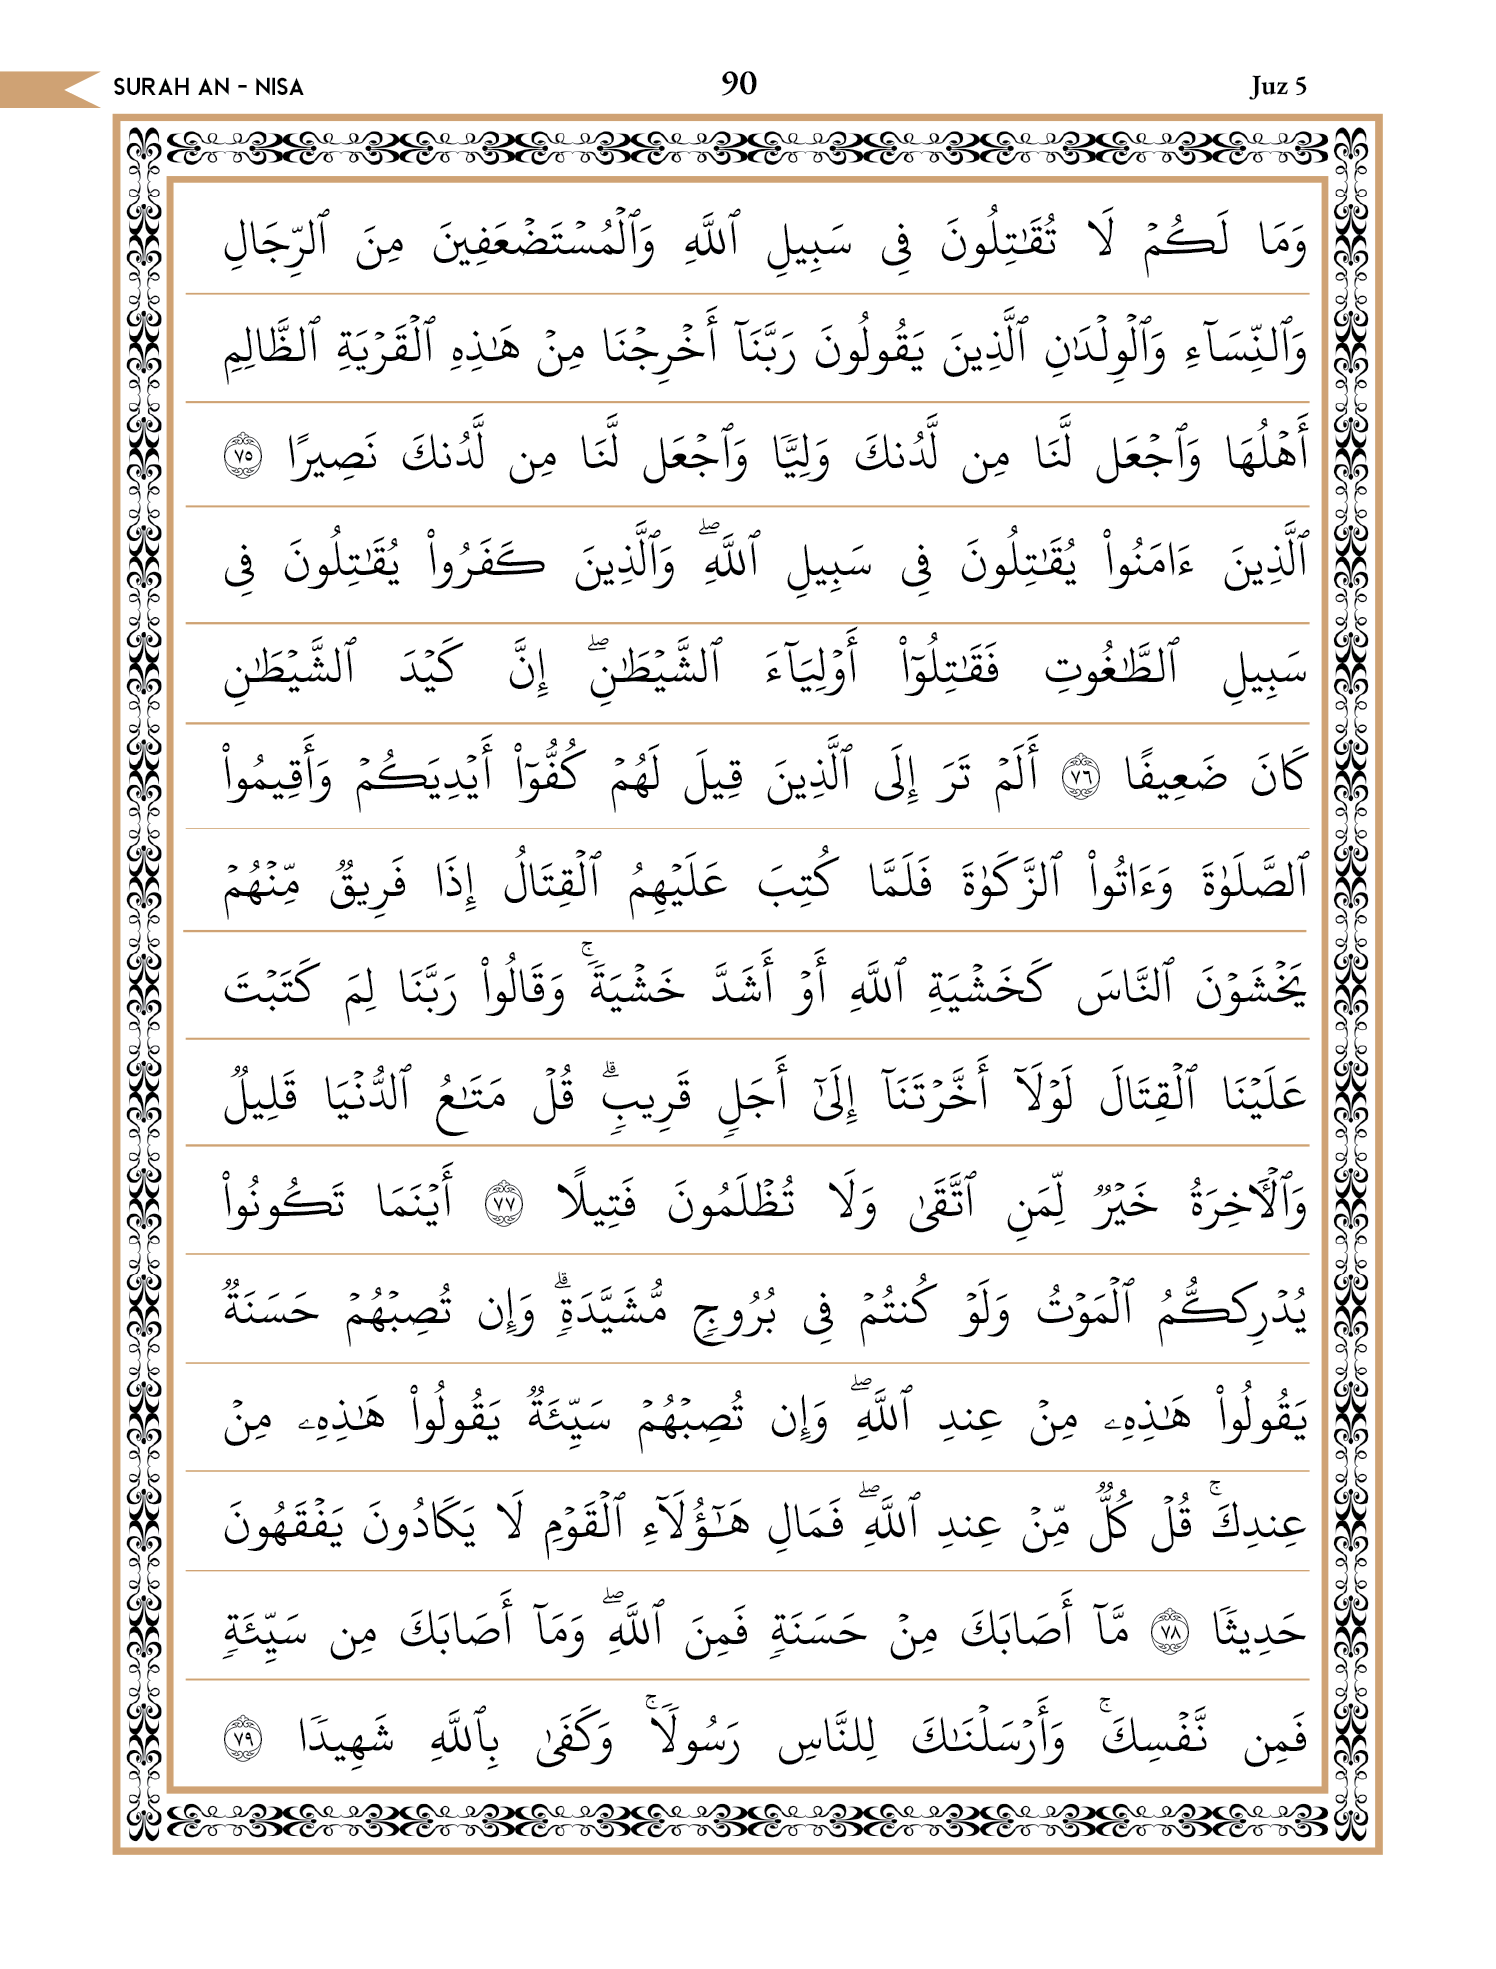 SURAH AN - NISA
90
Juz 5
وَمَا لَكُمۡ لَا تُقَٰتِلُونَ فِى سَبِيلِ ٱللَّهِ وَٱلۡمُسۡتَضۡعَفِينَ مِنَ ٱلرِّجَالِ
وَٱلنِّسَآءِ وَٱلۡوِلۡدَٰنِ ٱلَّذِينَ يَقُولُونَ رَبَّنَآ أَخۡرِجۡنَا مِنۡ هَٰذِهِ ٱلۡقَرۡيَةِ ٱلظَّالِمِ
أَهۡلُهَا وَٱجۡعَل لَّنَا مِن لَّدُنكَ وَلِيًّا وَٱجۡعَل لَّنَا مِن لَّدُنكَ نَصِيرًا ٧٥
ٱلَّذِينَ ءَامَنُواْ يُقَٰتِلُونَ فِى سَبِيلِ ٱللَّهِۖ وَٱلَّذِينَ كَفَرُواْ يُقَٰتِلُونَ فِى
سَبِيلِ ٱلطَّٰغُوتِ فَقَٰتِلُوٓاْ أَوۡلِيَآءَ ٱلشَّيۡطَٰنِۖ إِنَّ كَيۡدَ ٱلشَّيۡطَٰنِ
كَانَ ضَعِيفًا ٧٦ أَلَمۡ تَرَ إِلَى ٱلَّذِينَ قِيلَ لَهُمۡ كُفُّوٓاْ أَيۡدِيَكُمۡ وَأَقِيمُواْ
ٱلصَّلَوٰةَ وَءَاتُواْ ٱلزَّكَوٰةَ فَلَمَّا كُتِبَ عَلَيۡهِمُ ٱلۡقِتَالُ إِذَا فَرِيقٌ مِّنۡهُمۡ
يَخۡشَوۡنَ ٱلنَّاسَ كَخَشۡيَةِ ٱللَّهِ أَوۡ أَشَدَّ خَشۡيَةًۚ وَقَالُواْ رَبَّنَا لِمَ كَتَبۡتَ
عَلَيۡنَا ٱلۡقِتَالَ لَوۡلَآ أَخَّرۡتَنَآ إِلَىٰٓ أَجَلٍ قَرِيبٍۗ قُلۡ مَتَٰعُ ٱلدُّنۡيَا قَلِيلٌ
وَٱلۡأٓخِرَةُ خَيۡرٌ لِّمَنِ ٱتَّقَىٰ وَلَا تُظۡلَمُونَ فَتِيلًا ٧٧ أَيۡنَمَا تَكُونُواْ
يُدۡرِككُّمُ ٱلۡمَوۡتُ وَلَوۡ كُنتُمۡ فِى بُرُوجٍ مُّشَيَّدَةٍۗ وَإِن تُصِبۡهُمۡ حَسَنَةٌ
يَقُولُواْ هَٰذِهِۦ مِنۡ عِندِ ٱللَّهِۖ وَإِن تُصِبۡهُمۡ سَيِّئَةٌ يَقُولُواْ هَٰذِهِۦ مِنۡ
عِندِكَۚ قُلۡ كُلٌّ مِّنۡ عِندِ ٱللَّهِۖ فَمَالِ هَٰٓؤُلَآءِ ٱلۡقَوۡمِ لَا يَكَادُونَ يَفۡقَهُونَ
حَدِيثًا ٧٨ مَّآ أَصَابَكَ مِنۡ حَسَنَةٍ فَمِنَ ٱللَّهِۖ وَمَآ أَصَابَكَ مِن سَيِّئَةٍ
فَمِن نَّفۡسِكَۚ وَأَرۡسَلۡنَٰكَ لِلنَّاسِ رَسُولًاۚ وَكَفَىٰ بِٱللَّهِ شَهِيدًا ٧٩